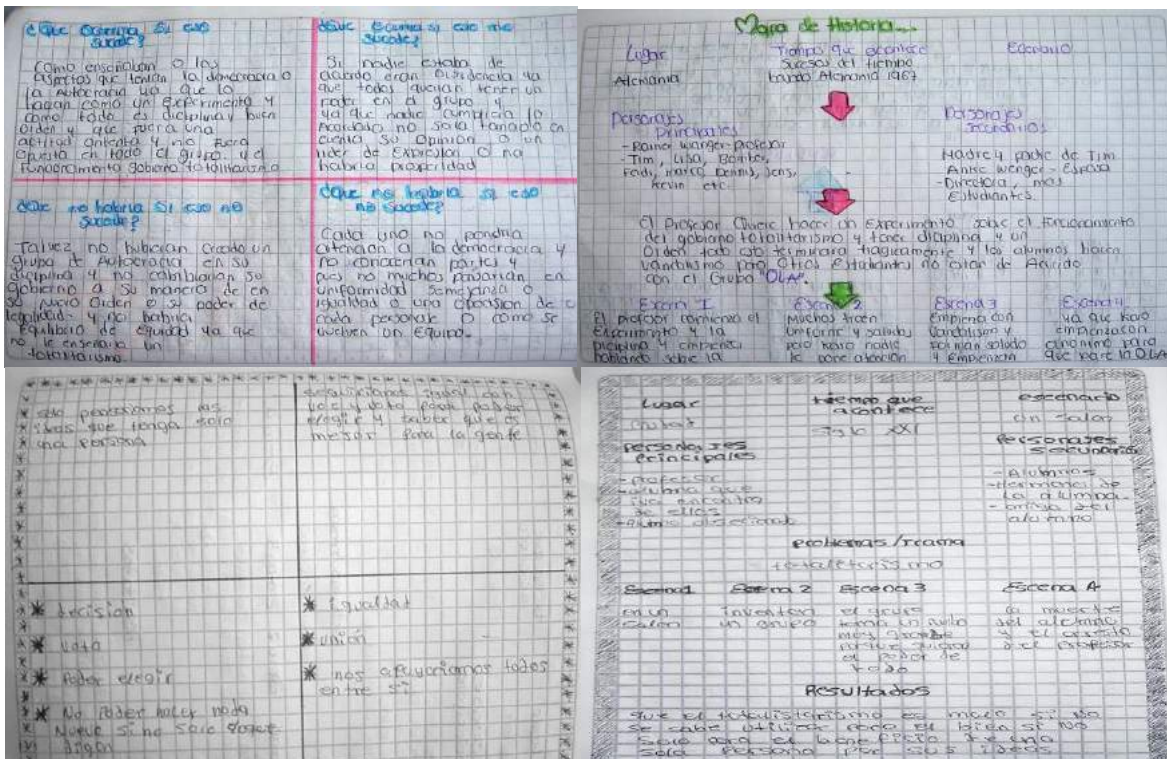 ¿Que Ocurriria si eso
sucede?
Como enseñaban o los
aspectos que tenian la democracia o
la Autocracia ya que lo
hagan como un experimento y
como todo es diciplina y buen
Orden y que fuera una
actitud y no fuera
opuesta en todo el grupo y el
gobierno totalitarismo
¿Que Ocurria si eso no
sucede?
Si nadie estaba de
acuerdo eran Disidencia ya
que todos querian tener un
poder en el grupo y
ya que nadie cumpliria lo
acordado no solo en
cuenta su Opinion o un
lider de Expresion O no
habria prosperidad
¿Que no habria si eso no
sucede?
Talvez no hubieran Creado un
grupo de Autocracia en su
diciplina y no cambiarian su
gobierno a su manera de en
su nuevo Orden o su poder de
legalidad y no habria
Equilibrio de equidad ya que
no le enseñaria un
totalitarismo
¿Que no habria si eso
no sucede?
Cada uno no pondria
atencion a la democracia y
no conocerian partes y
pues no muchos pensarian en
uniformidad semejanza o
igualdad o una de
cada personaje O como se
vuelven un Equipo.
Mapa de Historia...
Lugar
Tiempo que acontece
sucesos del tiempo
Ecenario
Alemania
Alemania 1967
Personajes
Principales
- Rainer Wanger-profesor
- Tim, Lisa, Bomber,
marco, Dennis, Jens,
Kevin etc.
Personajes
secundarios
Madre y padre de Tim
Anke wenger - Esposa
- Directora, mas
Estudiantes.
El Profesor Quiere hacer un Experimento sobre el funcionamiento
del gobierno totalitarismo y tener diciplina y un
Orden todo esto terminara tragicamente y los alumnos hacen
vandalismo para Otros Estudiantes no estar de Acuerdo
con el Grupo "OLA".
Escena 1
El profesor comienza el
Experimento y la
diciplina y empieza
hablando sobre la
Escena 2
Muchos traen
Uniforme y saludos
pero Karo nadie
le pone atencion
Escena 3
Empieza con
vandalismo y
forman saludo
y Empiezan
Escena 4
ya que Karo
empieza con
anonimo para
que pare la OLA
solo pensariamos las
ideas que tenga solo
una persona
seguiriamos igual con
voz y voto para poder
elegir y saber que es
mejor para la gente
* decision
* voto
* Poder elegir
* No Poder hacer nada
Nuevo si no solo
digan
* igualdad
* union
* nos apoyariamos todos
entre si
Lugar
ciudad
tiempo que
acontece
siglo XXI
escenario
un salon
personajes
principales
- profesor
- alumna que
iva encontra
de ellos
- Alumno
Personajes
secundarios
- Alumnos
- Hermano de
la alumna
- amigo del
alumno
problemas /trama
totaletarismo
Escena 1
en un
salon
Escena 2
inventan
un grupo
Escena 3
el grupo
toma un rumbo
muy grande
porque quieren
el poder de
todo
Escena 4
la muerte
del alumno
y el arresto
del profesor
Resultados
que el totalistarismo es malo si no
se sabe utilizar para el bien si no
solo para el beneficio de una
sola persona por sus ideas